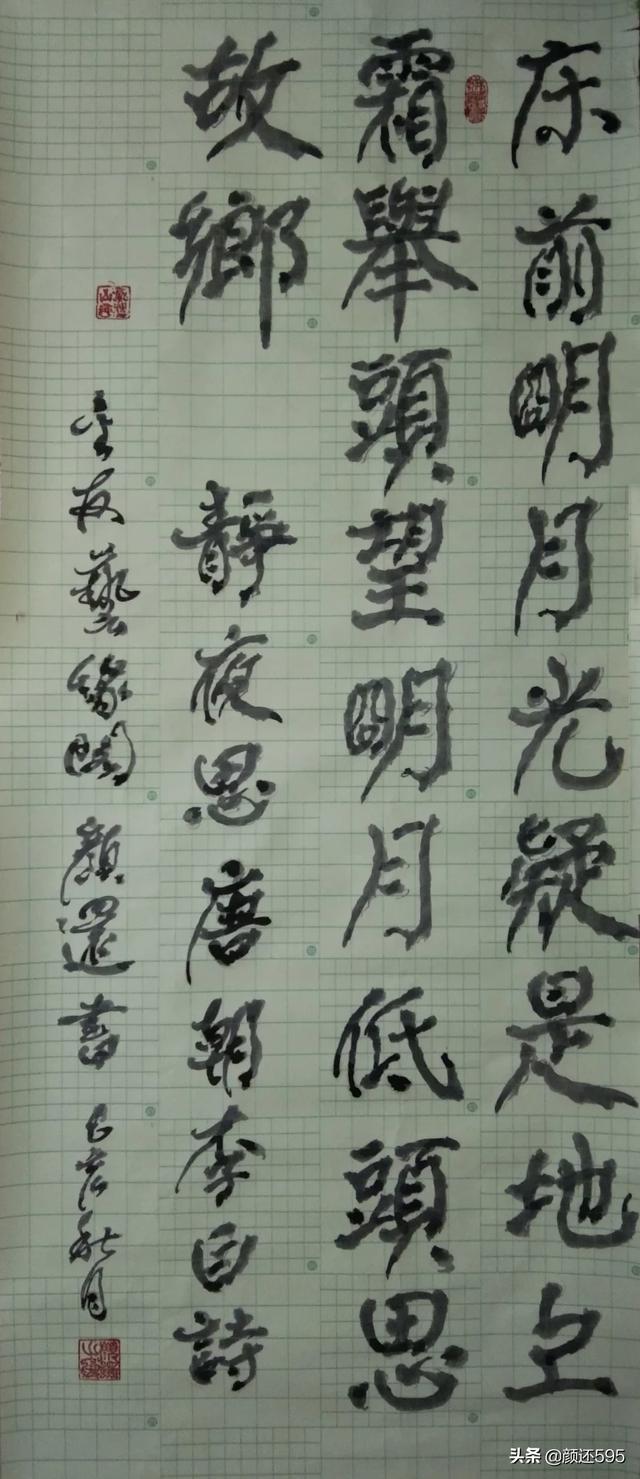 床前明月光疑是地上
霜舉頭望明月低頭思
故鄉
靜夜思唐朝李白詩
藝緣閣顏還書
秋月
头条 @颜还595